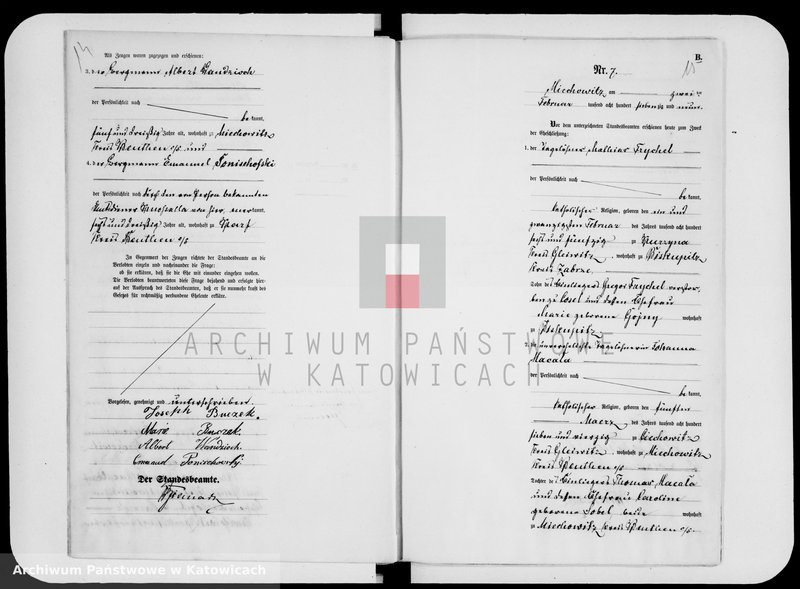 Als Zeugen waren zugezogen und erschienen:
3. der Bergmann Albert
der Persönlichkeit nach
bekannt,
fünf und dreißig Jahre alt, wohnhaft zu Miechowitz
Kreis Beuthen o/s und
4. der Bergmann Emanuel Tonischofski
der Persönlichkeit nach durch den von Person bekannten
von hier, anerkannt,
sechs und dreißig Jahre alt, wohnhaft zu
Kreis Beuthen o/s
In Gegenwart der Zeugen richtete der Standesbeamte an die
Verlobten einzeln und nacheinander die Frage:
ob sie erklären, daß sie die Ehe mit einander eingehen wollen.
Die Verlobten beantworteten diese Frage bejahend und erfolgte hier-
auf der Ausspruch des Standesbeamten, daß er sie nunmehr kraft des
Gesetzes für rechtmäßig verbundene Eheleute erkläre.
Vorgelesen, genehmigt und unterschrieben.
Joseph Buczek.
Marie Buczek
Albert
Emanuel
Der Standesbeamte.
B.
Nr. 7.
Miechowitz am zwei-
Februar tausend acht hundert siebenzig und neun.
Vor dem unterzeichneten Standesbeamten erschienen heute zum Zweck
der Eheschließung:
1. der Tagelöhner Mathias Frychel
der Persönlichkeit nach
bekannt,
katholischer Religion, geboren den ein und
zwanzigsten Februar des Jahres tausend acht hundert
sechs und fünfzig zu
Kreis Gleiwitz, wohnhaft zu Biskupitz
Kreis Zabrze.
Sohn des Einliegers Gregor Frychel verstor-
ben zu Cosel und dessen Ehefrau
Marie geborene Gojny wohnhaft
zu Biskupitz
2. die unverehelichte Tagelöhnerin Johanna
Macala
der Persönlichkeit nach
bekannt,
katholischer Religion, geboren den fünften
Maerz des Jahres tausend acht hundert
sieben und vierzig zu
Kreis Gleiwitz, wohnhaft zu Miechowitz
Kreis Beuthen o/s
Tochter des Einliegers Thomas Macala
und dessen Ehefrau Caroline
geborene Sobel beide wohnhaft
zu Miechowitz Kreis Beuthen o/s-
ARCHIWUM PAŃSTWOWE
W KATOWICACH
Archiwum Państwowe w Katowicach